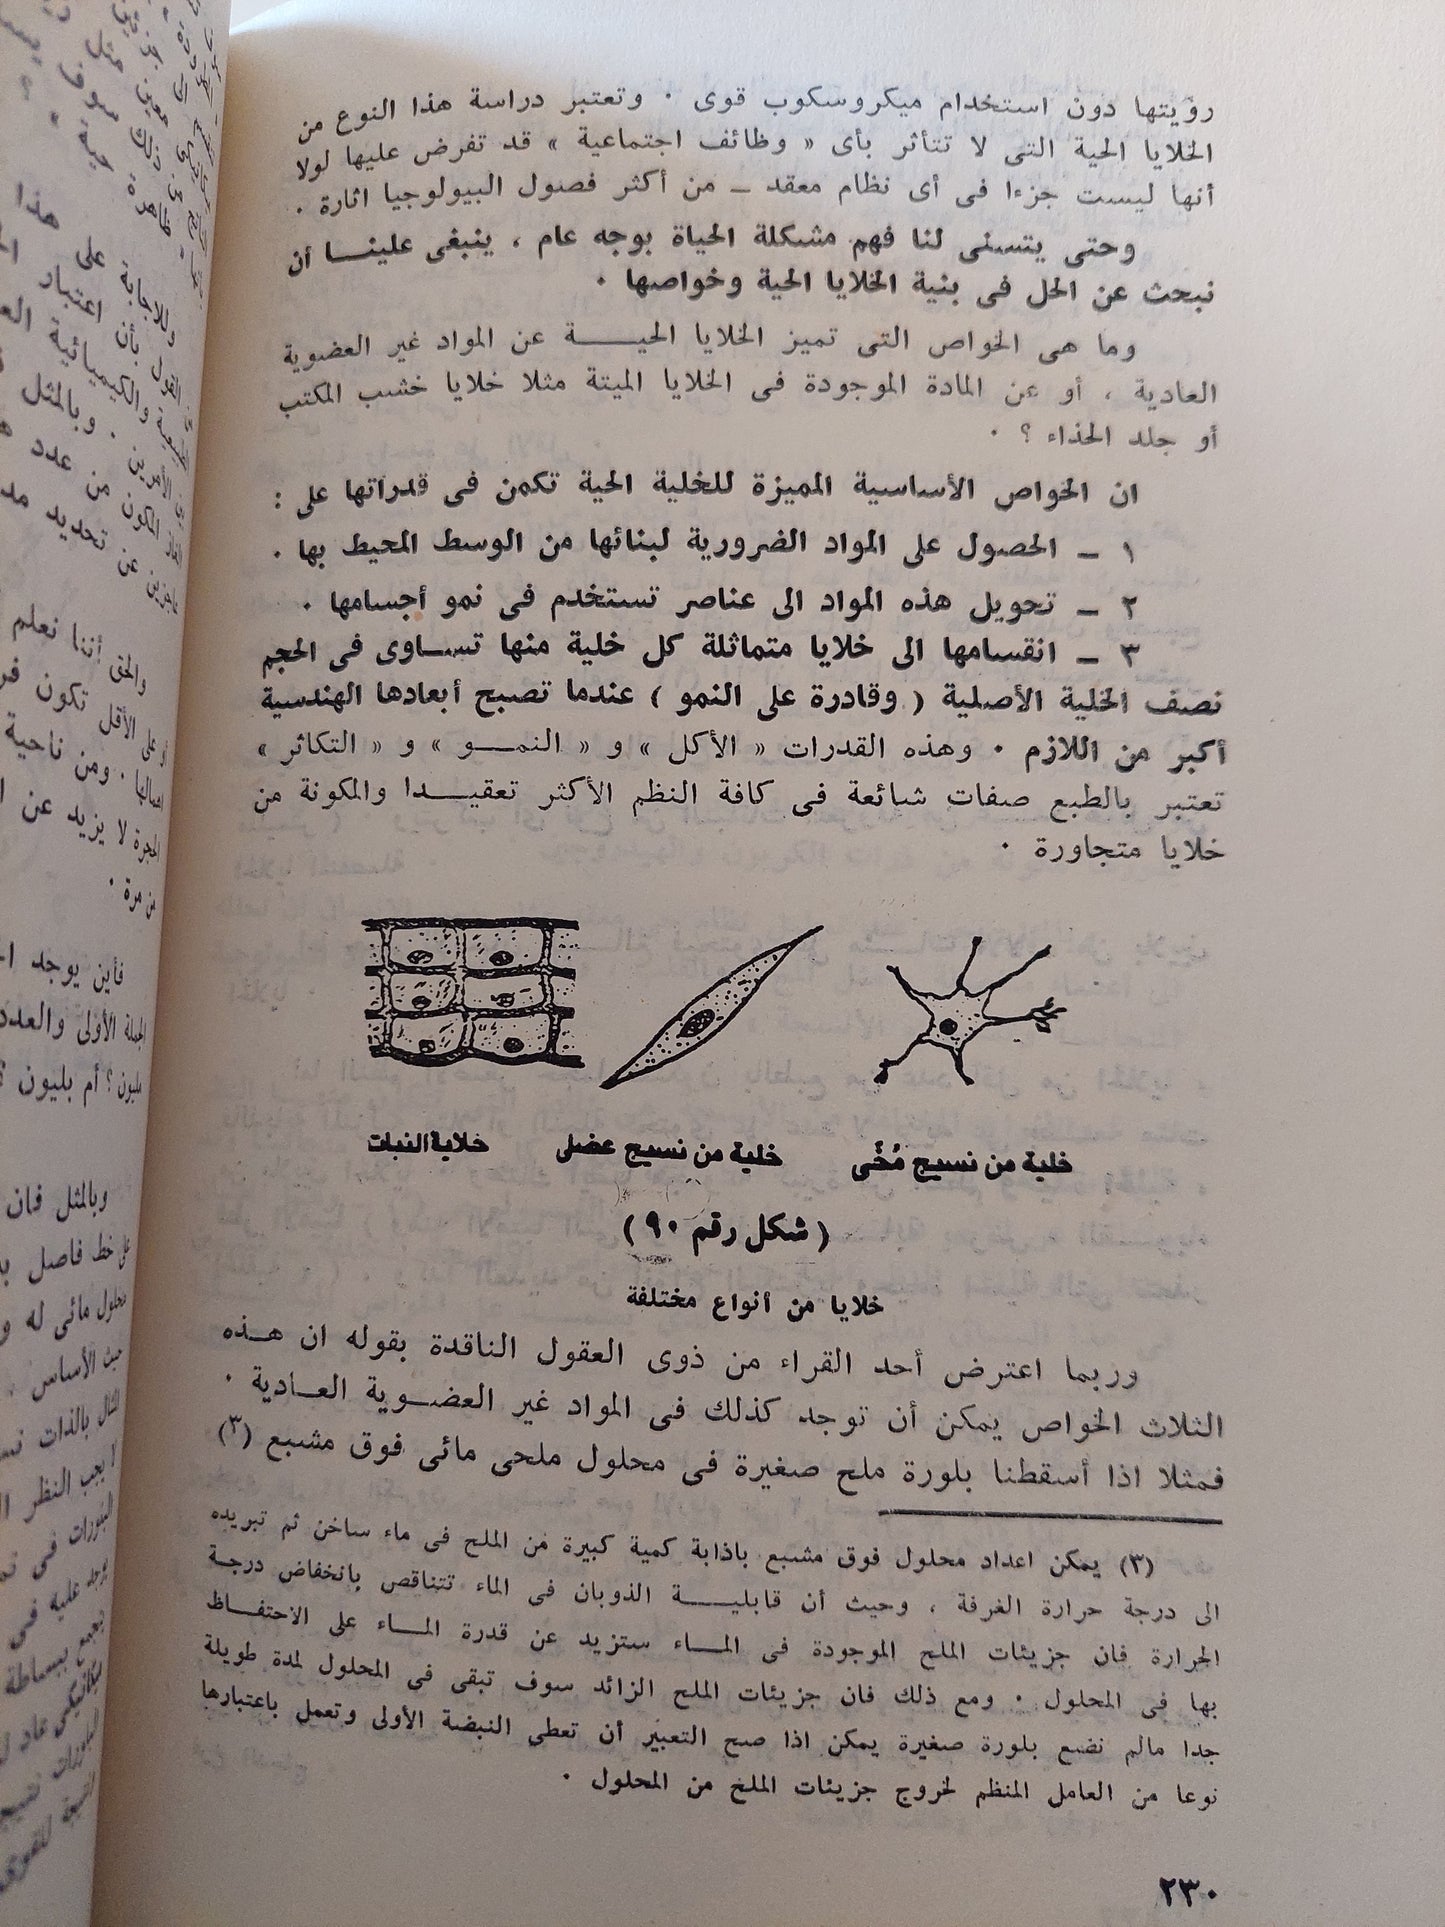 رؤيتها دون استخدام ميكروسكوب قوى . وتعتبر دراسة هذا النوع من
الخلايا الحية التى لا تتأثر بأى « وظائف اجتماعية » قد تفرض عليها لولا
أنها ليست جزءا فى أى نظام معقد ــ من أكثر فصول البيولوجيا اثارة .
وحتى يتسنى لنا فهم مشكلة الحياة بوجه عام ، ينبغى علينــا أن
نبحث عن الحل فى بنية الخلايا الحية وخواصها .
وما هى الخواص التى تميز الخلايا الحيــــة عن المواد غير العضوية
العادية ، أو عن المادة الموجودة فى الخلايا الميتة مثلا خلايا خشب المكتب
أو جلد الحذاء ؟ .
ان الخواص الأساسية المميزة للخلية الحية تكمن فى قدراتها على :
١ ــ الحصول على المواد الضرورية لبنائها من الوسط المحيط بها .
٢ ــ تحويل هذه المواد الى عناصر تستخدم فى نمو أجسامها .
٣ ــ انقسامها الى خلايا متماثلة كل خلية منها تســاوى فى الحجم
نصف الخلية الأصلية ( وقادرة على النمو ) عندما تصبح أبعادها الهندسية
أكبر من اللازم . وهذه القدرات « الأكل » و « النمـــو » و « التكاثر »
تعتبر بالطبع صفات شائعة فى كافة النظم الأكثر تعقيــدا والمكونة من
خلايا متجاورة .
خلية من نسيج مُخّى خلية من نسيج عضلى خلايا النبات
( شكل رقم ٩٠ )
خلايا من أنواع مختلفة
وربما اعترض أحد القراء من ذوى العقول الناقدة بقوله ان هــذه
الثلاث الخواص يمكن أن توجد كذلك فى المواد غير العضــوية العــادية .
فمثلا اذا أسقطنا بلورة ملح صغيرة فى محلول ملحى مائى فوق مشبع (٣)
(٣) يمكن اعداد محلول فوق مشبع باذابة كمية كبيرة من الملح فى ماء ساخن ثم تبريده
الى درجة حرارة الغرفة ، وحيث أن قابليــــة الذوبان فى الماء تتناقص بانخفاض درجة
الحرارة فان جزيئات الملح الموجودة فى المــاء ستزيد عن قدرة المــاء على الاحتفــاظ
بها فى المحلول . ومع ذلك فان جزيئات الملح الزائد سوف تبقى فى المحلول لمدة طويلة
جدا مالم نضع بلورة صغيرة يمكن اذا صح التعبير أن تعطى النبضة الأولى وتعمل باعتبارها
نوعا من العامل المنظم لخروج جزيئات الملح من المحلول .
٢٣٠
وللاجابة على هذا
والحق أننا نعلم
أو على الأقل تكون
من مرة .
فأين يوجد
الجملة الأولى والعدد
مليون ؟ أم بليون ؟
وبالمثل فان
على خط فاصل
محلول مائى له
حيث الأساس .